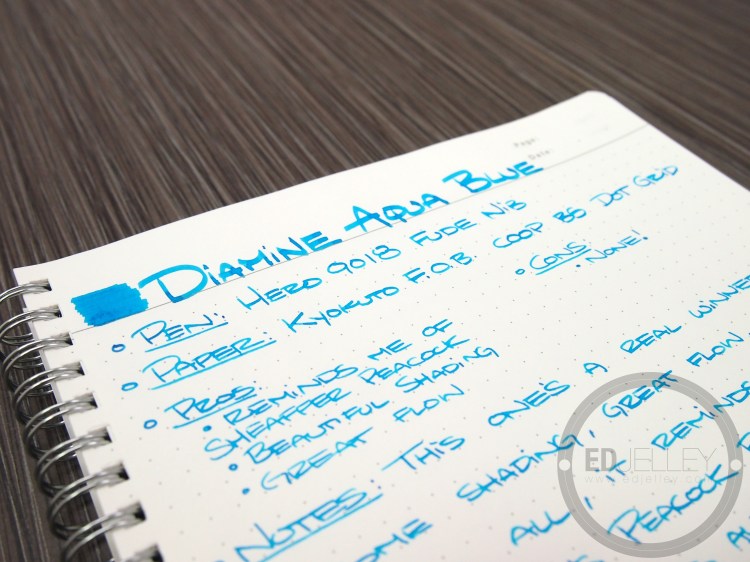 Page:
Date:
DIAMINE AQUA BLUE
PEN: HERO 9018 FUDE NIB
PAPER: KYOKUTO F.O.B. COOP B5 DOT GRID
PROS:
• REMINDS ME OF
SHEAFFER PEACOCK
• BEAUTIFUL SHADING
• GREAT FLOW
• CONS:
• NONE!
NOTES: THIS ONE'S A REAL WINNER
SHADING, GREAT FLOW
ALL, IT REMINDS
PEACOCK
ED JELLEY
www.edjelley.com